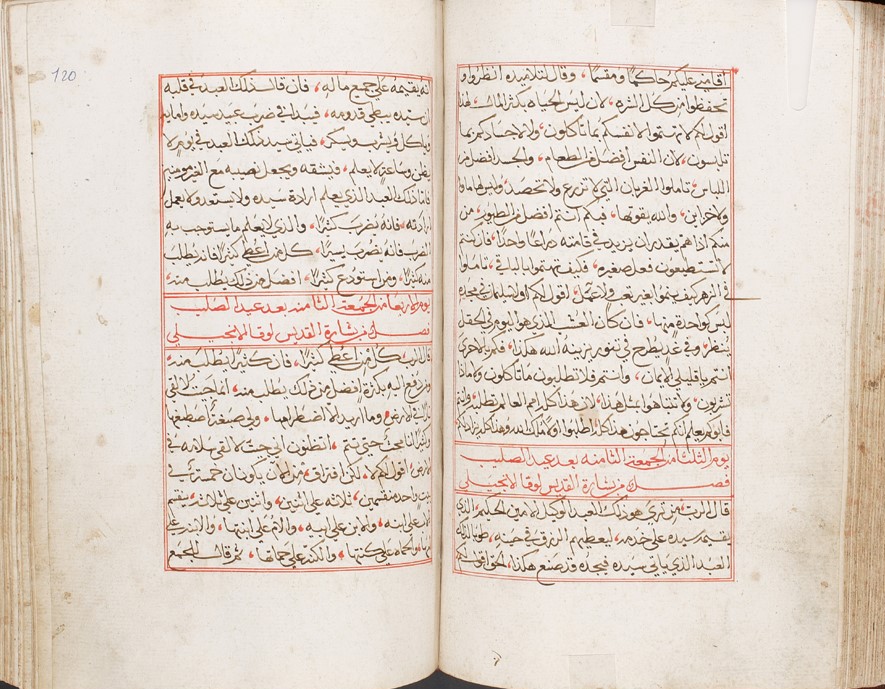 اقامني عليكم حاكما ومقسما، وقال لتلاميذه انظروا و
تحفظوا من كل الشره، لان ليس الحياه بكثر المال، لهذا
اقول لكم لا تهتموا لانفسكم بما تاكلون، ولا لاجسادكم بما
تلبسون، لان النفس افضل من الطعام، والجسد افضل من
اللباس، تاملوا الغربان التي لا تزرع ولا تحصد، وليس لها
ولا خزاين، والله يقوتها، فبكم انتم افضل من الطيور، من
منكم اذا هم يقدر ان يزيد في قامته ذراعا واحدا، فان كنتم
لا تستطيعون فعل صغيره، فكيف تهتموا بالباقي، تاملوا
في الزهر كيف ينموا بغير تعب ولا عمل، اقول لكم ولا سليمان في مجده
لبس كواحدة منها، فان كان العشب الذي هو اليوم في الحقل
ينظر، وفي غد يطرح في تنور يزينه الله هكذا، فكم بالاحرى
انتم يا قليلي الايمان، وانتم فلا تطلبون ما تاكلون وماذا
تشربون، ولا تهتموا بمثل هذا، لان هذا كله امم العالم تطلبه، وانتم
فابوكم يعلم انكم تحتاجون هذا كله، اطلبوا ملكوت الله وهذا كله يزاد لكم
يوم الثلثا من الجمعة الثامنه بعد عيد الصليب
فصل من بشارة القديس لوقا الانجيلي
قال الرب من ترى هو ذلك العبد الوكيل الامين الحكيم، الذي
يقيمه سيده على خدمه، ليعطيهم الرزق في حينه، طوبا لذلك
العبد الذي ياتي سيده فيجده قد صنع هكذا، الحق اقول لكم
120
انه يقيمه على جميع ماله، فان قال ذلك العبد في قلبه
ان سيده يبطي قدومه، فيبدا في ضرب عبيد سيده وامايه
وياكل ويشرب ويسكر، فياتي سيد ذلك العبد في يوم لا
يظن وساعة لا يعلم، فيشقه ويجعل نصيبه مع الغير مومنين
فاما ذلك العبد الذي يعلم ارادة سيده ولا يستعد ولا يعمل
ارادته، فانه يضرب كثيرا، والذي لا يعلم ما يستوجب به
الضرب فانه يضرب يسيرا، كل من اعطي كثيرا فانه يطلب
منه كثيرا، ومن استودع كثيرا، افضل من ذلك يطلب منه،
يوم الاربعا من الجمعة الثامنه بعد عيد الصليب
فصل من بشارة القديس لوقا الانجيلي
قال الرب كل من اعطي كثيرا، فان كثيرا يطلب منه
ومن دفع اليه بكثرة افضل من ذلك يطلب منه، انما جيت لالقي
نارا في الارض وما اريد الا اضطرامها، ولي صبغة اصطبغها
وكيف انا مجد حتى تتم، اتظنون اني جيت لالقي سلامه في
الارض اقول لكم لا، لكن افتراق، من الان يكونان خمسة في
بيت واحد منقسمين، ثلاثه على اثنين، واثنين على ثلاثه، ينقسم
الاب على ابنه، والابن على ابيه، والام على ابنتها، والابنه على
امها، والحماه على كنتها، والكنه على حماتها، ثم قال للجمع